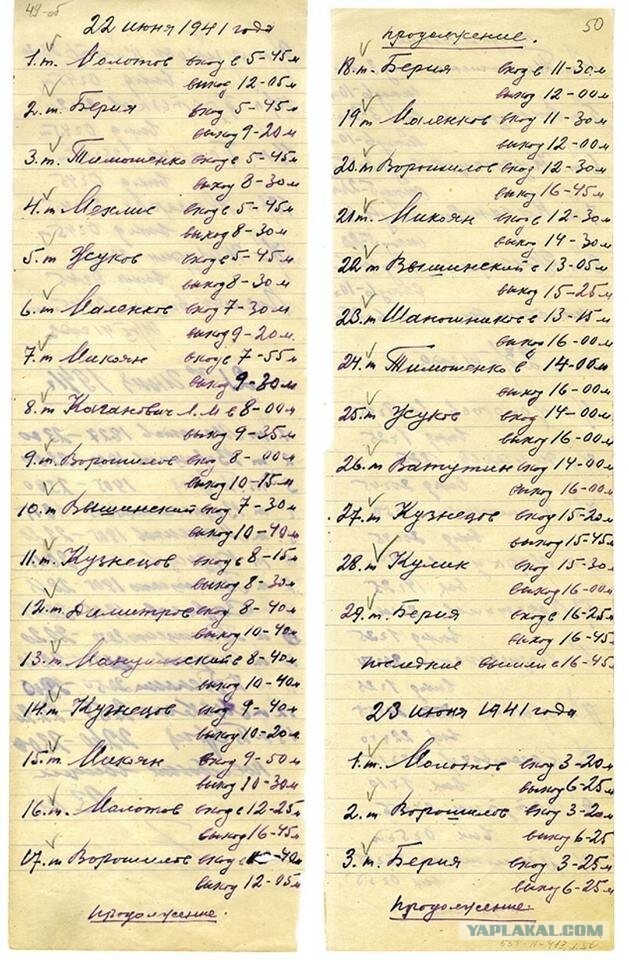 49-об
22 июня 1941 года
1. т. Молотов вход в 5-45м
выход 12-05м
2. т. Берия вход 5-45м
выход 9-20м
3. т. Тимошенко вход в 5-45м
выход 8-30м
4. т. Мехлис вход в 5-45м
выход 8-30м
5. т. Жуков вход в 5-45м
выход 8-30м
6. т. Маленков вход 7-30м
выход 9-20м.
7. т. Микоян вход в 7-55м
выход 9-30м
8. т. Каганович Л.М в 8-00м
выход 9-35м
9. т. Ворошилов вход 8-00м
выход 10-15м
10. т. Вышинский вход 7-30м
выход 10-40м
11. т. Кузнецов вход в 8-15м
выход 8-30м
12. т. Димитров вход 8-40м
выход 10-40м
13. т. Мануильский в 8-40м
выход 10-40м
14. т. Кузнецов вход 9-40м
выход 10-20м
15. т. Микоян вход 9-50м
выход 10-30м
16. т. Молотов вход в 12-25м
выход 16-45м
17. т Ворошилов вход 10-40м
выход 12-05м
продолжение.
50
продолжение.
18. т. Берия вход в 11-30м
выход 12-00м
19 т Маленков вход 11-30м
выход 12-00м
20. т Ворошилов вход 12-30м
выход 16-45м
21 т. Микоян вход в 12-30м
выход 14-30м
22. т Вышинский в 13-05м
выход 15-25м
23. т Шапошников в 13-15м
выход 16-00м
24. т Тимошенко в 14-00м
выход 16-00м
25. т Жуков вход 14-00м
выход 16-00м
26. т Ватутин вход 14-00м
выход 16-00м
27. т Кузнецов вход 15-20м
выход 15-45м
28. т Кулик вход 15-30м
выход 16-00м
29. т Берия вход 16-25м
выход 16-45м
последние вышли в 16-45м
23 июня 1941 года
1. т. Молотов вход 3-20м
выход 6-25м
2. т Ворошилов вход 3-20м
выход 6-25
3. т. Берия вход 3-25м
выход 6-25м
продолжение.
YAPLAKAL.COM